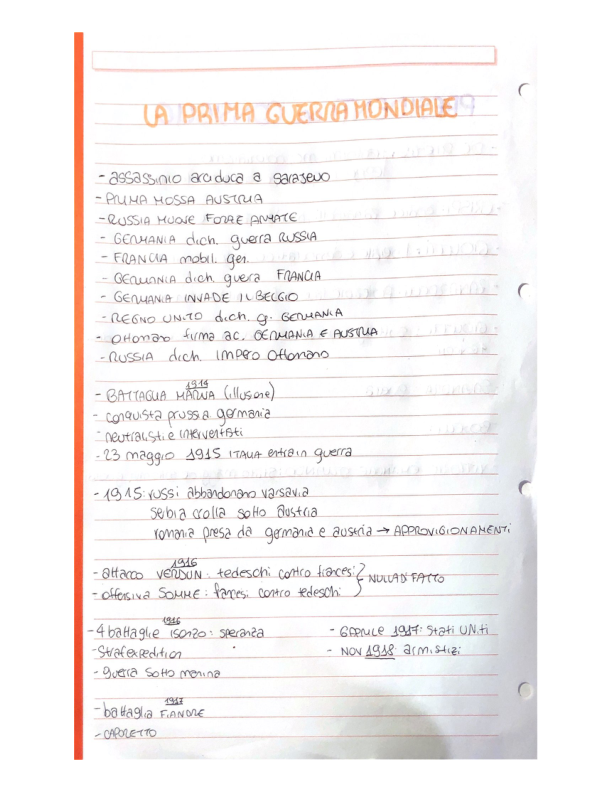 LA PRIMA GUERRA MONDIALE
- assassinio arciduca a sarasevo
- PRIMA MOSSA AUSTRIA
- RUSSIA MUOVE FORZE ARMATE
- GERMANIA dich. guerra RUSSIA
- FRANCIA mobil. gen.
- GERMANIA dich. guera FRANCIA
- GERMANIA INVADE IL BELGIO
- REGNO UNITO dich. g. GERMANIA
- Ottomano firma ac. GERMANIA E AUSTRIA
- RUSSIA dich. IMPERO Ottomano
1914
- BATTAGLIA MARNA (illusione)
- conquista prussia germania
- neutralisti e interventisti
- 23 maggio 1915 ITALIA entra in guerra
- 1915: russi abbandonano varsavia
serbia crolla sotto austria
romania presa da germania e austria → APPROVIGIONAMENTI
1916
- attacco VERDUN: tedeschi contro francesi
- offensiva SOMME: francesi contro tedeschi } NULLA DI FATTO
1916
- 4 battaglie isonzo: speranza
- Strafexpedition
- guerra sottomarina
- 6 APRILE 1917: Stati UNiti
- NOV 1918: armistizi
1917
- battaglia FIANDRE
- CAPORETTO